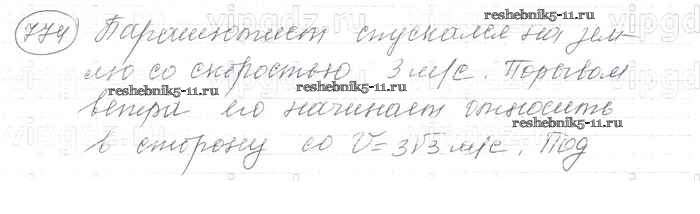 774 Парашютист спускался на зем-
лю со скоростью 3 м/с. Порывом
ветра его начинает относить
в сторону со V=3√3 м/с. Под
reshebnik5-11.ru
reshebnik5-11.ru
reshebnik5-11.ru
reshebnik5-11.ru
reshebnik5-11.ru